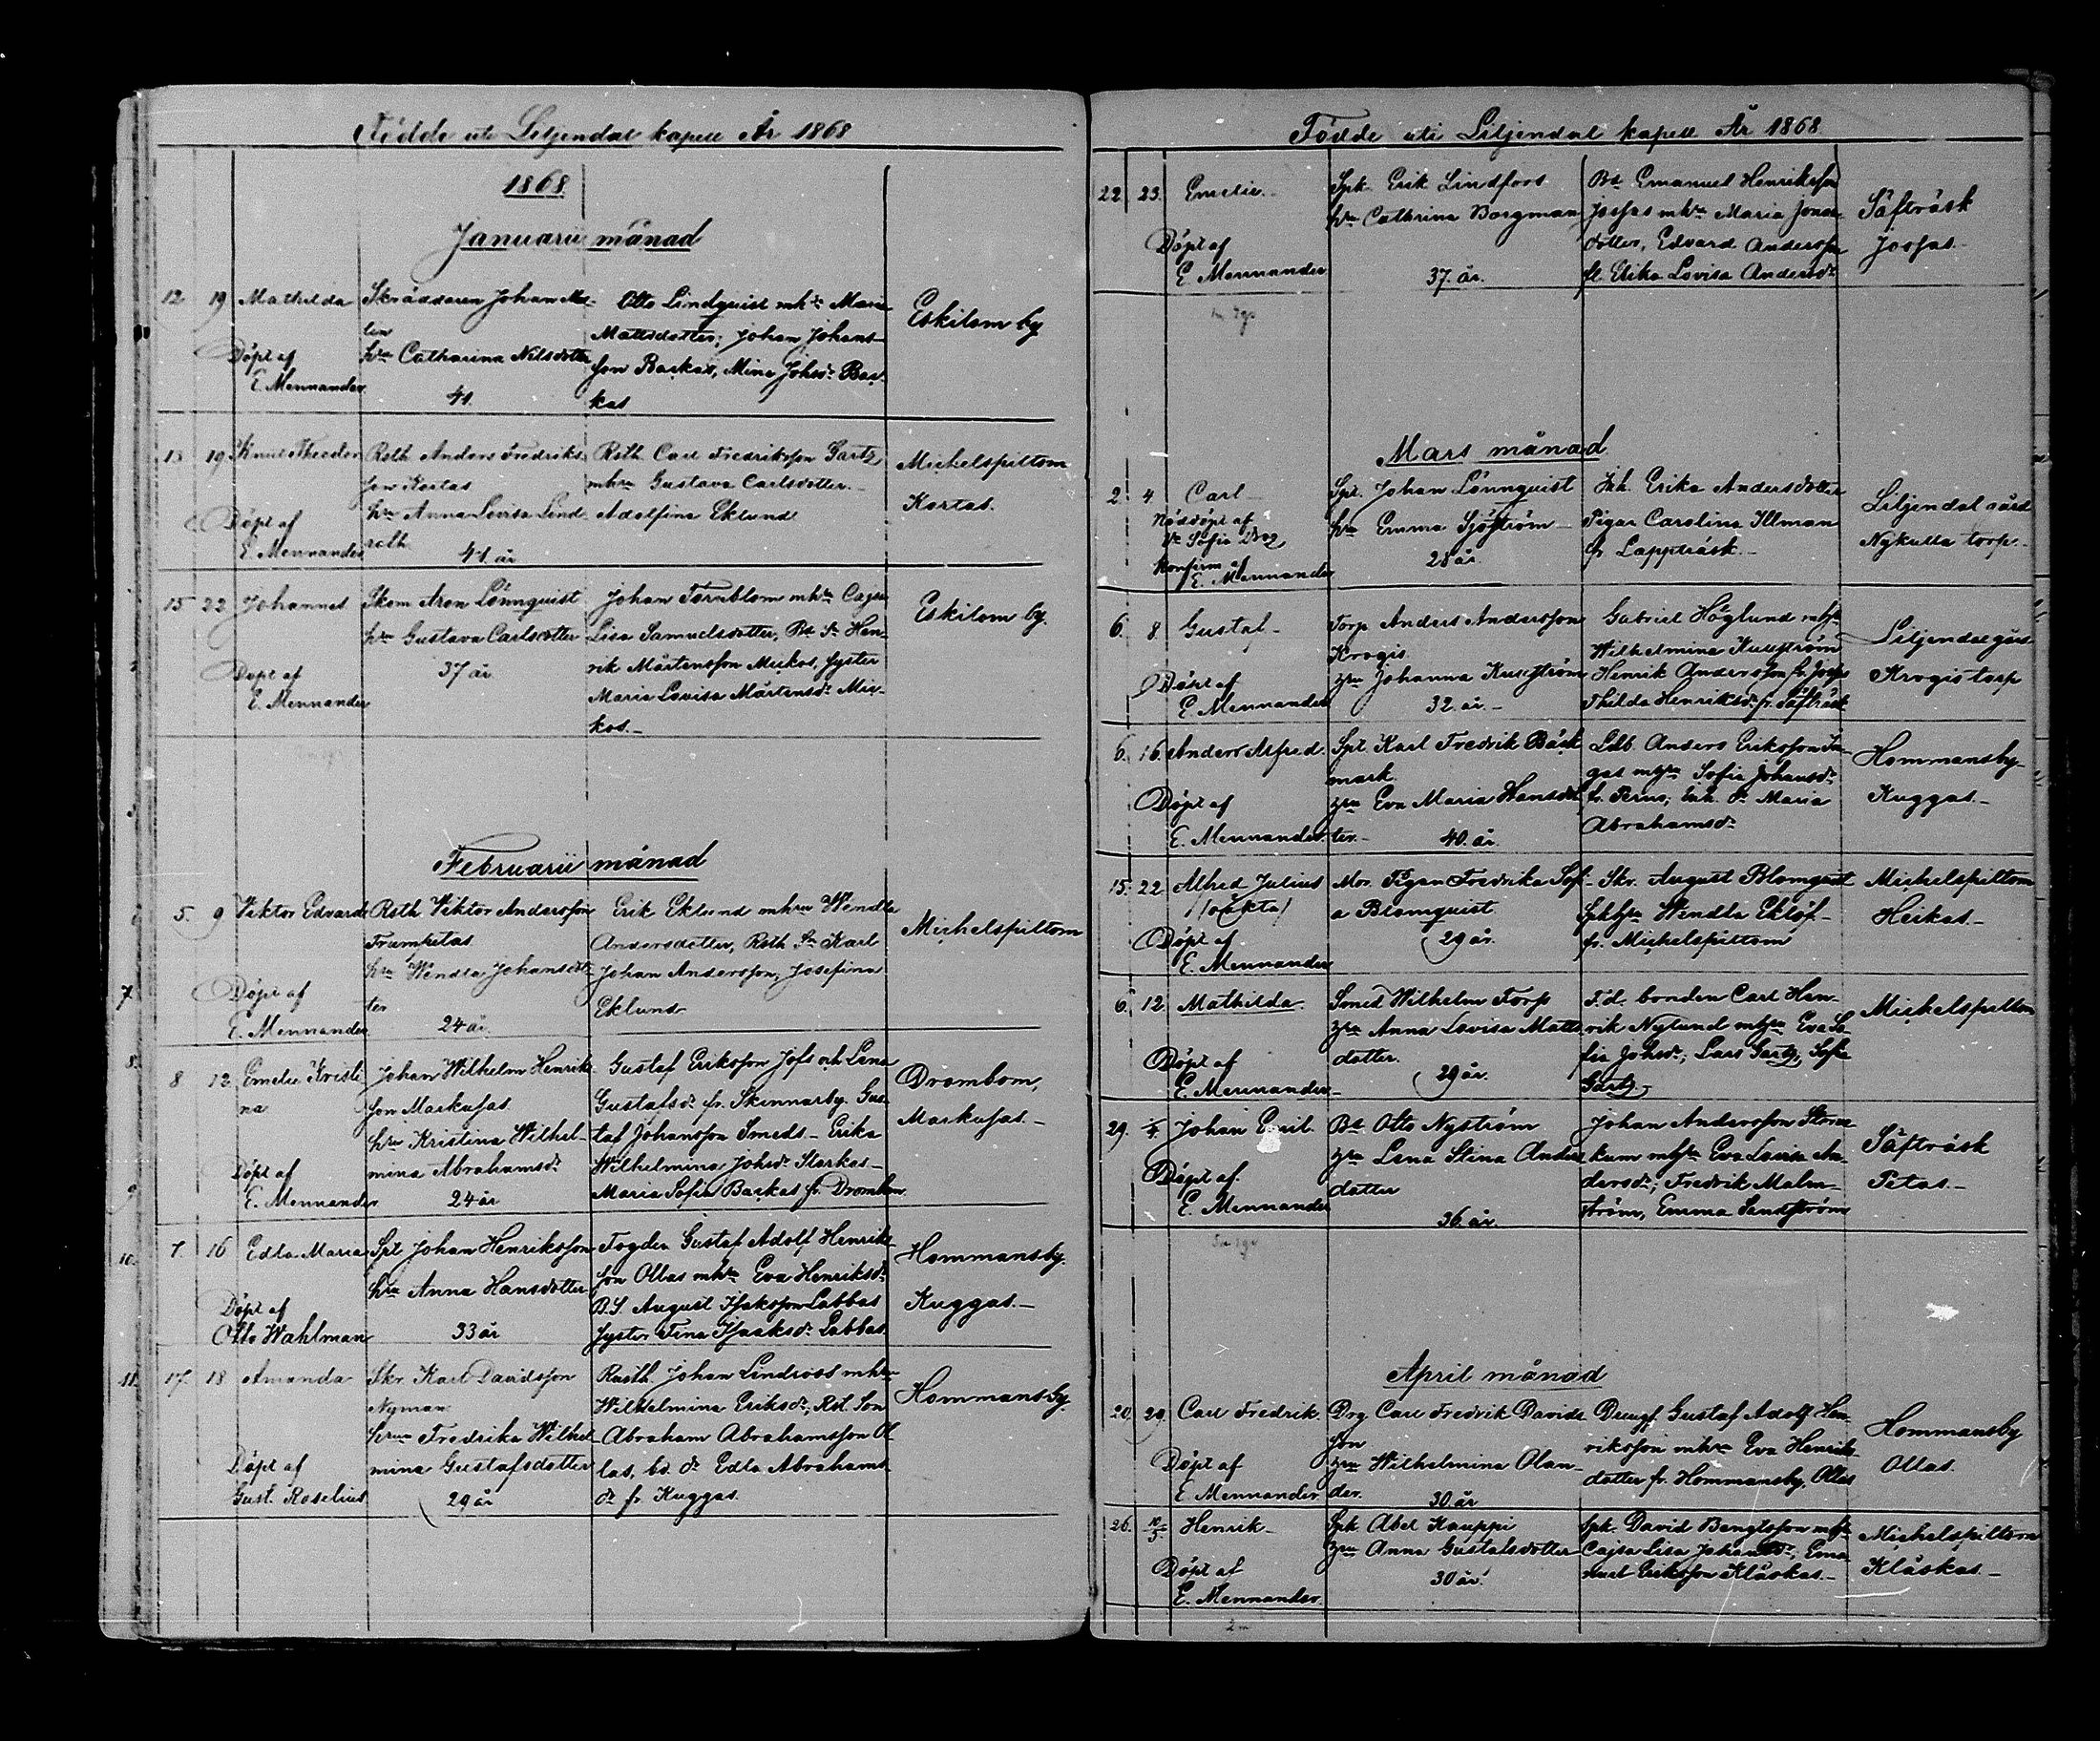 Födde uti Liljendal kapell År 1868
1868
Januarii månad
12 19 Mathilda
Döpt af
E. Mennander
Skräddaren Johan
lin
hru Catharina Nilsdotter
41.
Otto Lindquist mhu Maria
Mattsdotter; Johan Johans-
son Backas, Mina Johsdr Bac-
kas
Eskilom by
13 19 Knut Theodor
Döpt af
E. Mennander
Rsth Anders Fredriks
son Kortas
hru Anna Lovisa Lind-
roth
41 år
Rsth Carl Fredriksson Gartz
mhru Gustava Carlsdotter.
Adolfina Eklund
Michelspiltom
Kortas.
15 22 Johannes
Döpt af
E. Mennander
Skom Aron Lönnquist
hru Gustava Carlsdotter
37 år
Johan Törnblom mhru Cajsa
Lisa Samuelsdotter, Bd Sn Hen-
rik Mårtensson Mickos, syster
Maria Lovisa Mårtensdr Mic-
kos.-
Eskilom by.
Februarii månad
5. 9 Viktor Edvard
Döpt af
E. Mennander
Rsth Viktor Andersson
Trumpetas
hru Wendla Johansdot-
ter
24 år.
Erik Eklund mhru Wendla
Andersdotter, Rsth Sn Karl
Johan Andersson, Josefina
Eklund
Michelspiltom
8 12 Emelie Kristi
na
Döpt af
E. Mennander
Johan Wilhelm Henriks
son Markusas
hru Kristina Wilhel-
mina Abrahamsdr
24 år
Gustaf Eriksson Jofs och Lena
Gustafsdr fr. Skinnarby. Gus-
taf Johansson Smeds - Erika
Wilhelmina Johsdr Starkas -
Maria Sofia Backas fr. Drombom
Drombom,
Markusas.-
7. 16 Edla Maria
Döpt af
Otto Wahlman
Spt Johan Henriksson
hru Anna Hansdotter
33 år
Togden Gustaf Adolf Henriks
son Ollas mhru Eva Henriksdr
B.S. August Isaksson Labbas
syster Fina Isaaksdr Labbas.
Hommansby.
Kuggas.-
17. 18 Amanda
Döpt af
Gust. Roselius
Skr. Karl Davidsson
Nyman
hru Fredrika Wilhel-
mina Gustafsdotter
29 år
Rusth. Johan Lindroos mhru
Wilhelmina Eriksdr; Rst. Son
Abraham Abrahamsson Ol-
las, bd. dr Edla Abrahams
dr fr. Kuggas.
Hommansby
7.
8.
9
10.
11.
Födde uti Liljendal kapell År 1868
22 23. Emelie.
Döpt af
E. Mennander
Spk. Erik Lindfors
hru Cathrina Borgman
37. år.
Bd Emanuel Henriksson
Josfas mhru Maria Jonas
dotter, Edvard Andersson
fl. Erika Lovisa Andersdr
Säfträsk
Josfas.-
Mars månad
2. 4 Carl -
Nöddöpt af
Konfirm af
E. Mennander
Spt. Johan Lönnquist
hru Emma Sjöström -
28 år.
Inh. Erika Andersdotter
Pigan Carolina Illman
fr Lappträsk.-
Liljendal gård
Nykulla torp.-
6. 8. Gustaf -
Döpt af
E. Mennander
Torp Anders Andersson
Krogis
hru Johanna
32. år.-
Gabriel Höglund mhu
Wilhelmina
Henrik Andersson fr. Josfs
Thilda Henriksdr fr. Säfträsk
Liljendal gård
Krogis torp
6. 16. Anders Alfred.
Döpt af
E. Mennander
Spt. Karl Fredrik Bäck
mark
hru Eva Maria Hansdot
ter.-
40. år.
Ldb. Anders Eriksson In-
gas mhru Sofia Johansdr
fr. Perno; Inh. dr Maria
Abrahamsdr
Hommansby-
Kuggas.-
15. 22 Alfred Julius
/:oäkta/
Döpt af
E. Mennander
Mor. Pigan Fredrika Sofi-
a Blomquist
29 år.
Skr. August Blomquist
Spkhru Wendla Eklöf -
fr. Michelspiltom
Michelspiltom
Heikas.-
6 12. Mathilda.
Döpt af
E. Mennander.-
Smed Wilhelm Torp
hru Anna Lovisa Matts
dotter.
29 år.
F.d. bonden Carl Hen-
rik Nylund mhru Eva So-
fia Johsdr; Lars Gartz, Sofia
Gartz.
Michelspiltom
29. Johan Emil.
Döpt af.
E. Mennander
Bd Otto Nyström
hru Lena Stina Anders
dotter
36 år.
Johan Andersson Storm
kum mhru Eva Lovisa An-
dersdr; Fredrik Malm-
ström, Emma Sandström
Säfträsk
Petas.-
April månad
20 29. Carl Fredrik.
Döpt af
E. Mennander
Drg. Carl Fredrik Davids
son
hru Wilhelmina Olan-
der.
30 år
Drengf. Gustaf Adolf Hen-
riksson mhru Eva Henriks
dotter fr. Hommansby, Ollas
Hommansby
Ollas.
26. 10/5 Henrik -
Döpt af
E. Mennander.
Spk. Abel Kauppi
hru Anna Gustafsdotter
30 år
Spk. David Bengtsson mhu
Cajsa Lisa Johansdr, Ema-
nuel Eriksson Kläskas.-
Michelspiltom
Kläskas.-
2 m